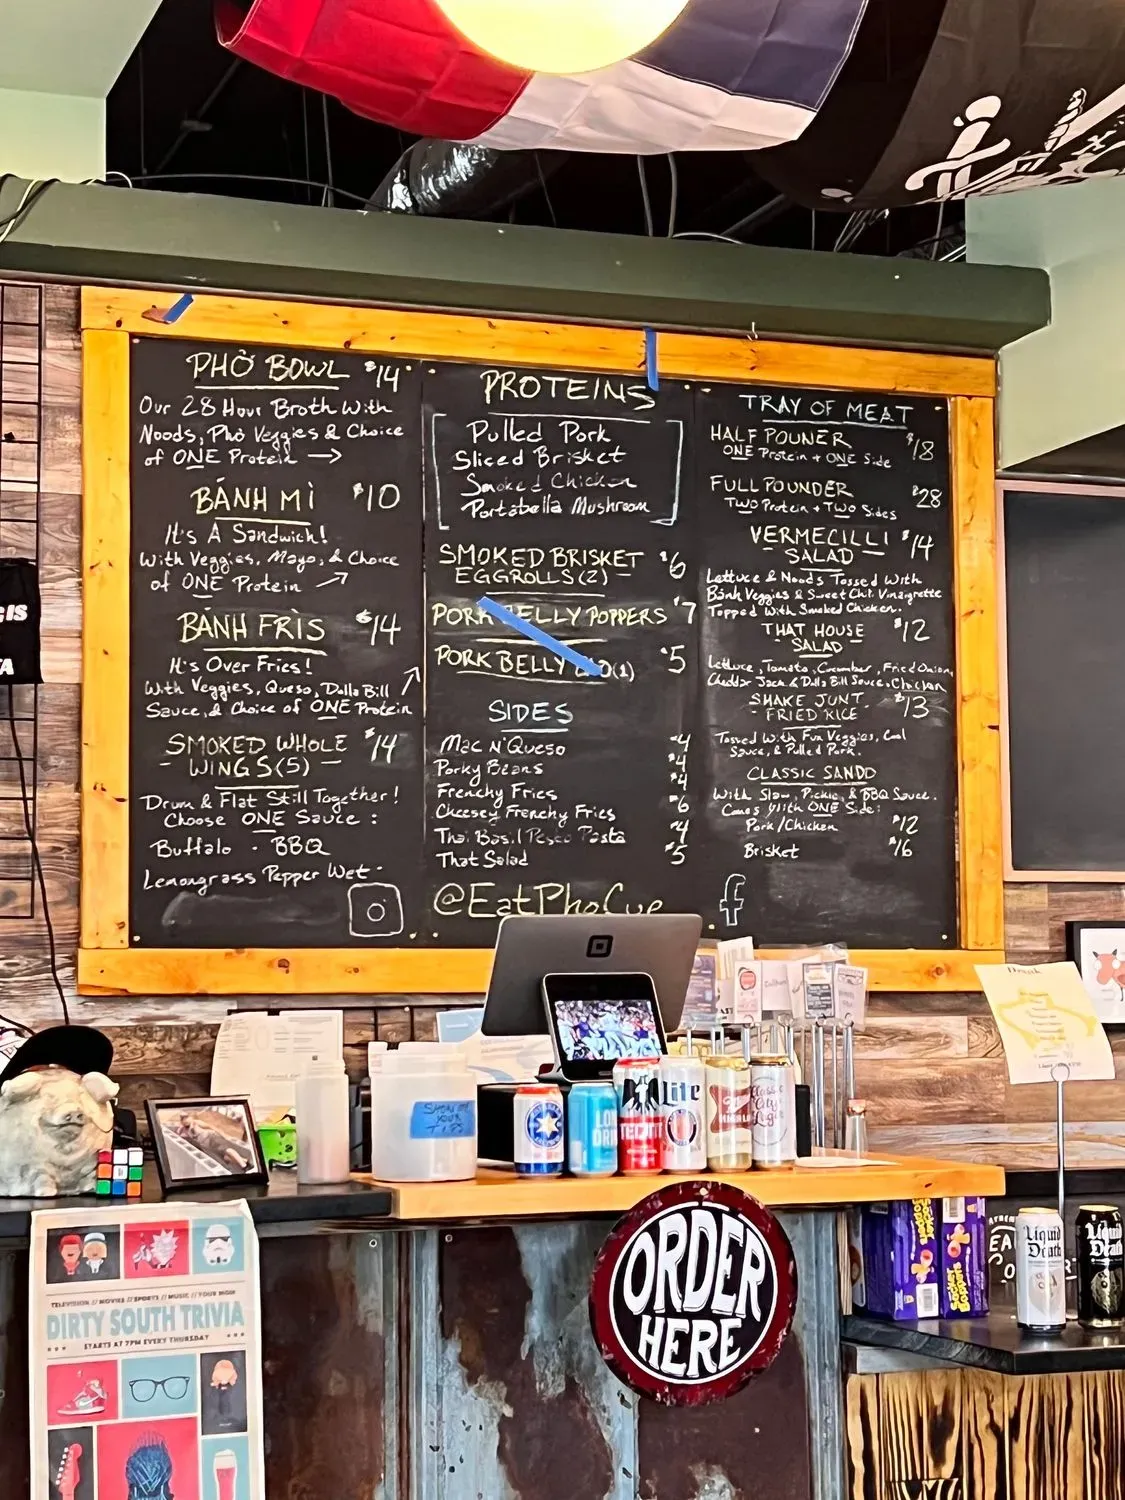 PHỞ BOWL $14
Our 28 Hour Broth With
Noods, Pho Veggies & Choice
of ONE Protein →
BÁNH MÌ $10
It's A Sandwich!
With Veggies, Mayo, & Choice
of ONE Protein
BÁNH FRÌS $14
It's Over Fries!
With Veggies, Queso, Dolla Bill
Sauce, & Choice of ONE Protein
SMOKED WHOLE $14
WINGS (5)
Drum & Flat Still Together!
Choose ONE Sauce :
Buffalo · BBQ
Lemongrass Pepper Wet
PROTEINS
Pulled Pork
Sliced Brisket
Smoked Chicken
Portabella Mushroom
SMOKED BRISKET $6
EGGROLLS (2)
PORK BELLY POPPERS $7
PORK BELLY (1) $5
SIDES
Mac N' Queso $4
Porky Beans $4
Frenchy Fries $4
Cheesey Frenchy Fries $6
Thai Basil Pesto Pasta $4
That Salad $5
@EatPhoCue
f
TRAY OF MEAT
HALF POUNER $18
ONE Protein + ONE Side
FULL POUNDER $28
TWO Protein + TWO Sides
VERMECILLI $14
SALAD
Lettuce & Noods Tossed With
Bánh Veggies & Sweet Chili Vinaigrette
Topped With Smoked Chicken.
THAT HOUSE $12
SALAD
Lettuce, Tomato, Cucumber, Fried Onion,
Cheddar Jack & Dolla Bill Sauce, Chicken
SHAKE JUNT $13
FRIED RICE
Tossed With Fun Veggies, Cool
Sauce, & Pulled Pork.
CLASSIC SANDO
With Slaw, Pickle, & BBQ Sauce.
Comes With ONE Side:
Pork/Chicken $12
Brisket $16
SHOW ME
YOUR
TIPS
LONE
TECATE
Lite
HIGH LIFE
Classic
City
Lager
ORDER
HERE
Liquid
Death
Liquid
Death
TELEVISION // MOVIES // SPORTS // MUSIC // YOUR MOM
DIRTY SOUTH TRIVIA
STARTS AT 7PM EVERY THURSDAY